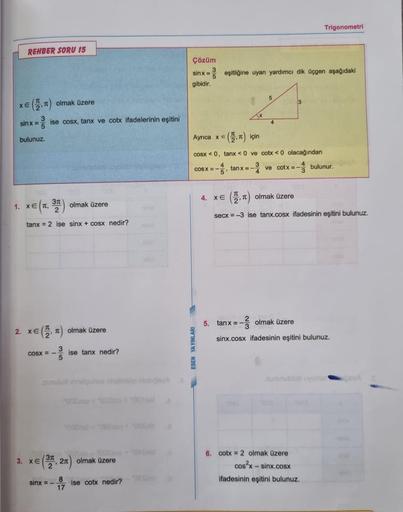 Trigonometri
REHBER SORU 15
x ∈ (π/2, π) olmak üzere
sinx = 3/5 ise cosx, tanx ve cotx ifadelerinin eşitini
bulunuz.
Çözüm
sinx = 3/5 eşitliğine uyan yardımcı dik üçgen aşağıdaki
gibidir.
5
3
x
4
Ayrıca x ∈ (π/2, π) için
cosx < 0, tanx < 0 ve cotx < 0 olacağından
cosx = -4/5, tanx = -3/4 ve cotx = -4/3 bulunur.
1. x ∈ (π, 3π/2) olmak üzere
tanx = 2 ise sinx + cosx nedir?
2. x ∈ (π/2, π) olmak üzere
cosx = -3/5 ise tanx nedir?
3. x ∈ (3π/2, 2π) olmak üzere
sinx = -8/17 ise cotx nedir?
ESEN YAYINLARI
4. x ∈ (π/2, π) olmak üzere
secx = -3 ise tanx.cosx ifadesinin eşitini bulunuz.
5. tanx = -2/3 olmak üzere
sinx.cosx ifadesinin eşitini bulunuz.
6. cotx = 2 olmak üzere
cos²x - sinx.cosx
ifadesinin eşitini bulunuz.